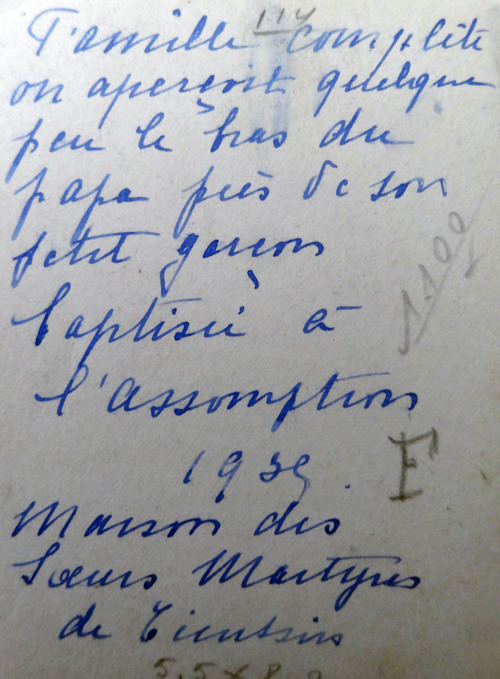 117
Famille complète
on aperçoit quelque
peu le bras du
papa près de son
petit garçon
baptisé à
l'assomption
1939.
F
1.100
Maison des
Sœurs Martyres
de Tientsin
5,5 x 8